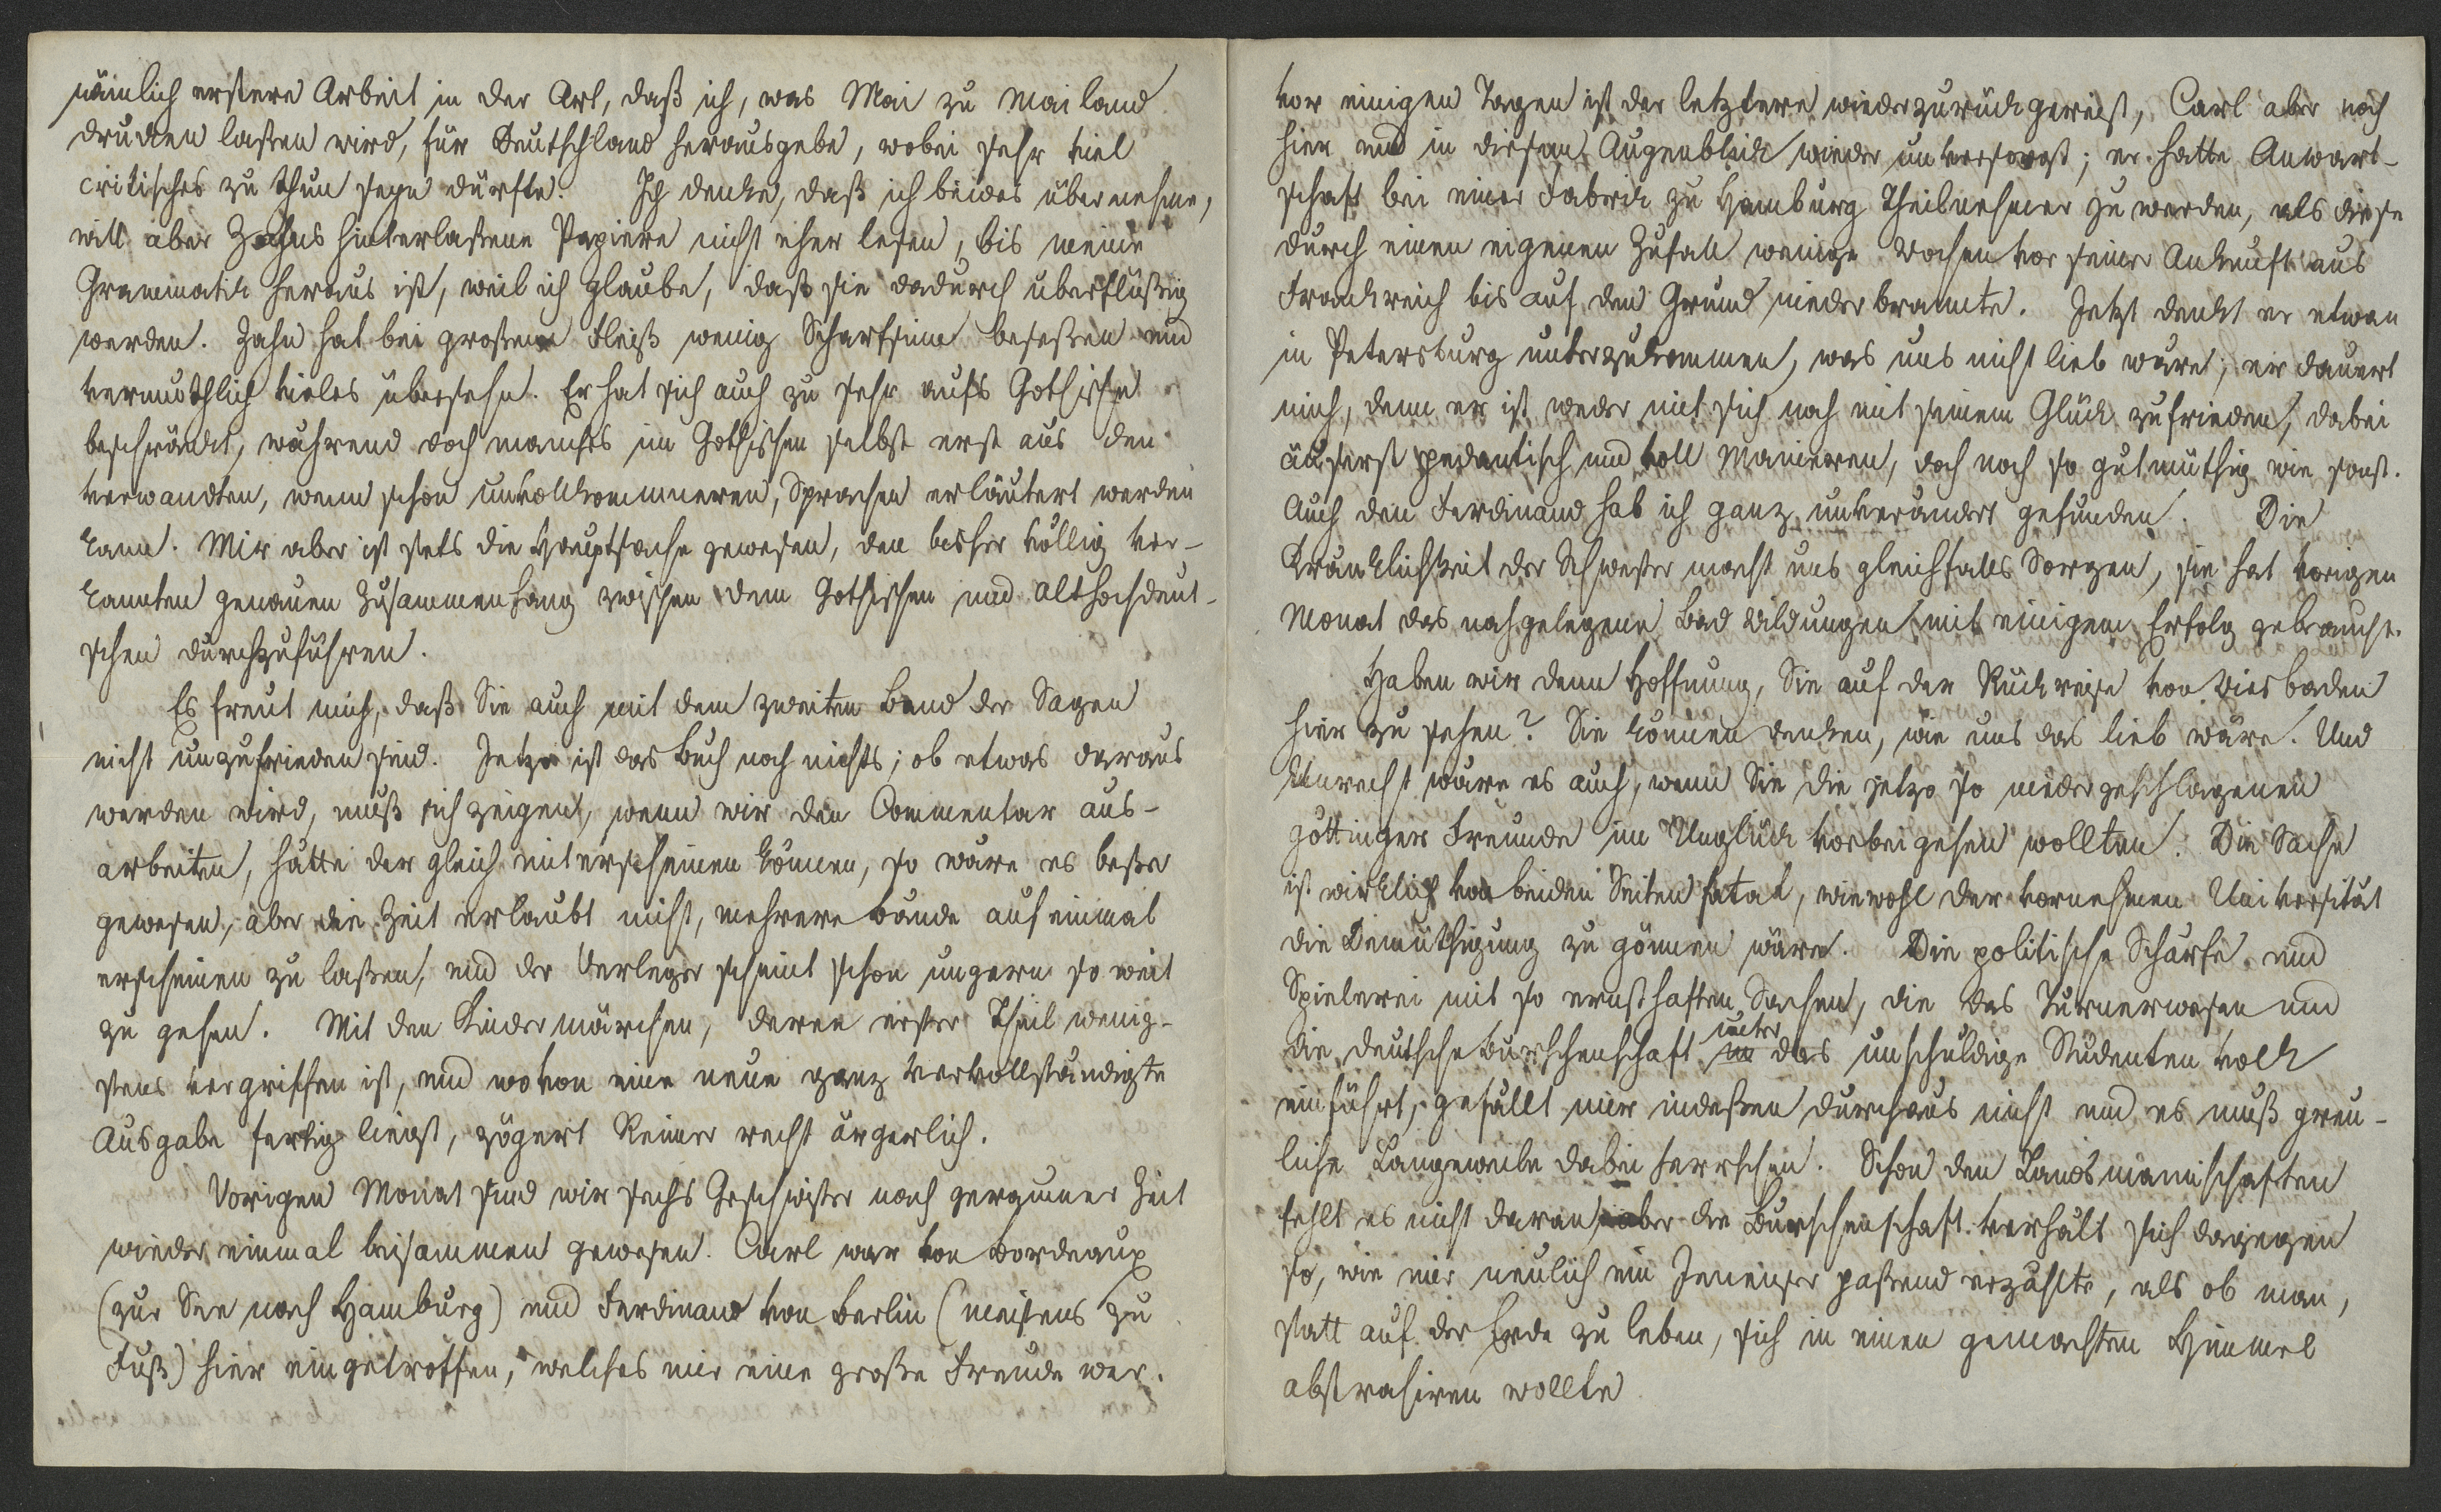 nämlich erstere Arbeit in der Art, daß ich, was Mai zu Mailand
drucken laßen wird, für Deutschland herausgebe, wobei sehr viel
critisches zu thun seyn dürfte. Ich denke, daß ich beides übernehme,
will aber Zahns hinterlaßene Papiere nicht eher lesen, bis meine
Grammatik heraus ist, weil ich glaube, daß sie dadurch überflüßig
werden. Zahn hat bei großem Fleiß wenig Scharfsinn beseßen und
vermuthlich vieles übersehn. Er hat sich auch zu sehr aufs Gothische
beschränkt, während doch manches im Gothischen selbst erst aus den
verwandten, wenn schon unvollkommneren, Sprachen erläutert werden
kann. Mir aber ist stets die Hauptsache gewesen, den bisher völlig ver-
kannten genauen Zusammenhang zwischen dem Gothischen und Althochdeut-
schen durchzuführen.
Es freut mich, daß Sie auch mit dem zweiten Band der Sagen
nicht unzufrieden sind. Jetzo ist das Buch noch nichts; ob etwas daraus
werden wird, muß sich zeigen, wenn wir den Commentar aus-
arbeiten, hätte der gleich miterscheinen können, so wäre es beßer
gewesen, aber die Zeit erlaubt nicht, mehrere Bände auf einmal
erscheinen zu laßen, und der Verleger scheint schon ungern so weit
zu gehen. Mit den Kindermärchen, deren erster Theil wenig-
stens vergriffen ist, und wovon eine neue ganz vervollständigte
Ausgabe fertig liegt, zögert Reimer recht ärgerlich.
Vorigen Monat sind wir sechs Geschwister nach geraumer Zeit
wieder einmal beisammen gewesen. Carl war von Bordeaux
(zur See nach Hamburg) und Ferdinand von Berlin (meistens zu
Fuß) hier eingetroffen, welches mir eine große Freude war.
vor einigen Tagen ist der letztere wieder zurückgereist, Carl aber noch
hier und in diesem Augenblick wieder unversorgt; er hatte Anwart-
schaft bei einer Fabrik zu Hamburg Theilnehmer zu werden, als diese
durch einen eigenen Zufall wenige Wochen vor seiner Ankunft aus
Frankreich bis auf den Grund niederbrannte. Jetzt denkt er etwan
in Petersburg unterzukommen, was uns nicht lieb wäre; er dauert
mich, denn er ist weder mit sich noch mit seinem Glück zufrieden, dabei
äuserst pedantisch und voll Manieren, doch noch so gutmüthig wie sonst.
Auch den Ferdinand hab ich ganz unverändert gefunden. Die
Kränklichkeit der Schwester macht uns gleichfalls Sorgen, sie hat vorigen
Monat das nahgelegene Bad Wildungen mit einigem Erfolg gebraucht.
Haben wir denn Hoffnung, Sie auf der Rückreise von Wiesbaden
hier zu sehen? Sie können denken, wie uns das lieb wäre. Und
Unrecht wäre es auch, wenn Sie die jetzo so niedergeschlagenen
göttinger Freunde im Unglück vorbeigehen wollten. Die Sache
ist wirklich von beiden Seiten fatal, wiewohl der vornehmen Universität
die Demüthigung zu gönnen wäre. Die politische Schärfe und
Spielerei mit so ernsthaften Sachen, die das Turnerwesen und
die deutsche Burschenschaft unter das unschuldige Studentenvolk
einführt, gefällt mir indeßen durchaus nicht und es muß greu-
liche Langeweile dabei herrschen. Schon den Landsmannschaften
fehlt es nicht daran, aber die Burschenschaft verhält sich dagegen
so, wie mir neulich ein Jenenser paßend erzählte, als ob man,
statt auf der Erde zu leben, sich in einen gemachten Himmel
abstrahiren wollte